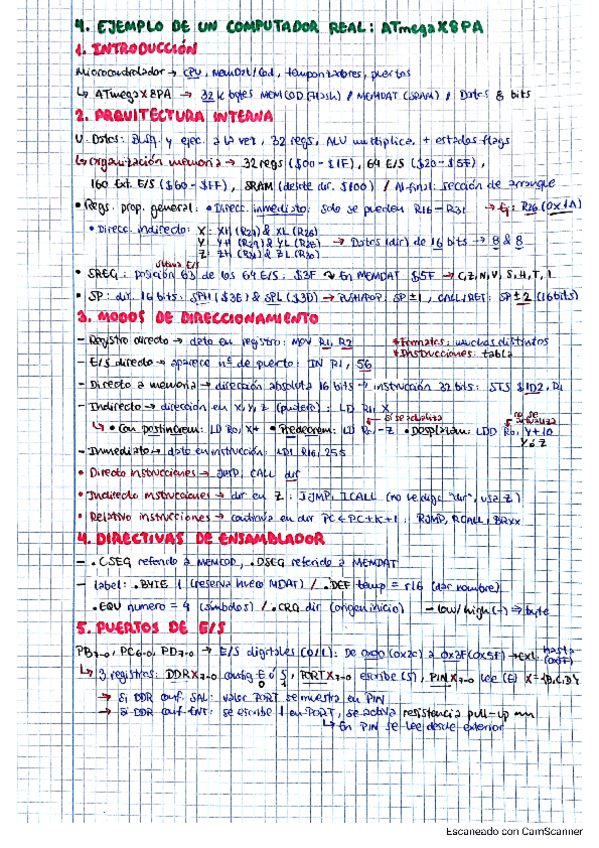 4. EJEMPLO DE UN COMPUTADOR REAL: ATmegaX8PA
1. INTRODUCCIÓN
Microcontrolador → CPU, memDat/Cod, temporizadores, puertos
↳ ATmegaX8PA → 32 k bytes MEMCOD (Flash) / MEMDAT (SRAM) / Datos 8 bits
2. ARQUITECTURA INTERNA
U. Datos: Búsq. y ejec. a la vez, 32 regs, ALU multiplica, + estados flags
↳ organización memoria → 32 regs ($00-$1F), 64 E/S ($20-$5F),
160 Ext. E/S ($60-$FF), SRAM (desde dir. $100) / Al final: sección de arranque
• Regs. prop. general: • Direcc. inmediato: solo se pueden R16-R31 → Ej: R26 (0x1A)
• Direcc. indirecto: X: XH (R27) & XL (R26)
Y: YH (R29) & YL (R28) → Datos (dir) de 16 bits → 8 & 8
Z: ZH (R31) & ZL (R30)
• SREG: posición 63 de los 64 E/S: $3F ↷ En MEMDAT $5F → C, Z, N, V, S, H, T, I
• SP: dir. 16 bits: SPH ($3E) & SPL ($3D) → PUSH/POP: SP±1, CALL/RET: SP±2 (16bits)
3. MODOS DE DIRECCIONAMIENTO
- Registro directo → dato en registro: MOV R1, R2
* Formatos: muchos distintos
* Instrucciones: tabla
- E/S directo → aparece nº de puerto: IN R1, 56
- Directo a memoria → dirección absoluta 16 bits → instrucción 32 bits: STS $1D2, R1
- Indirecto → dirección en X, Y, Z (puntero): LD R1, X
sí se actualiza
no se actualiza
↳ • Con postincrem: LD R0, X+ • Predecrem: LD R0, -Z • Desplazam: LDD R0, Y+10
Y ó Z
- Inmediato → dato en instrucción: LDI R16, 255
• Directo instrucciones → JMP, CALL dir
• Indirecto instrucciones → dir en Z: IJMP, ICALL (no se diga "dir", usa Z)
• Relativo instrucciones → continúa en dir PC ← PC+K+1: RJMP, RCALL, BRxx
4. DIRECTIVAS DE ENSAMBLADOR
- .CSEG referido a MEMCOD, .DSEG referido a MEMDAT
- label: .BYTE 1 (reserva hueco MDAT) / .DEF temp = r16 (dar nombre)
.EQU numero = 4 (símbolos) / .ORG dir (origen inicio) - low/high(-) ⇒ byte
5. PUERTOS DE E/S
PB7-0, PC6-0, PD7-0 → E/S digitales (0/1): De 0x00 (0x20) a 0x3F (0x5F) → ext. hasta (0xFF)
↳ 3 registros: DDRX7-0 config E ó S, PORTX7-0 escribe (S), PINX7-0 lee (E) X={B,C,D}
0 1
→ Si DDR conf. SAL: valor PORT se muestra en PIN
→ Si DDR conf. ENT: se escribe 1 en PORT, se activa resistencia pull-up
↳ En PIN se lee desde exterior
Escaneado con CamScanner